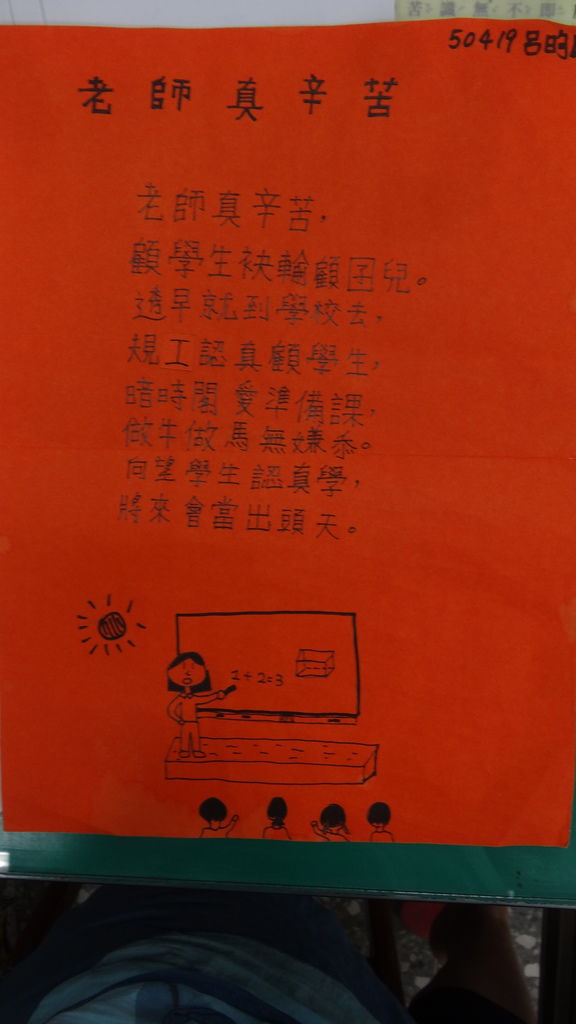 50419 呂昀
老師真辛苦
老師真辛苦,
顧學生袂輸顧囝兒。
透早就到學校去,
規工認真顧學生,
暗時閣愛準備課,
做牛做馬無嫌忝。
向望學生認真學,
將來會當出頭天。
1+2=3